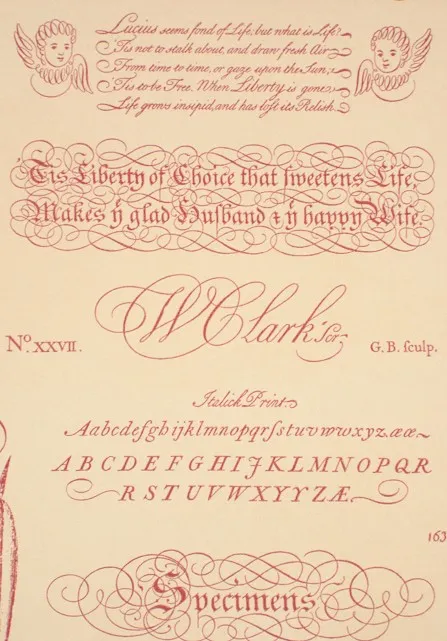 Lucius seems fond of Life, but what is Life?
'Tis not to stalk about, and draw fresh Air
From time to time, or gaze upon the Sun;
'Tis to be Free. When Liberty is gone,
Life grows insipid, and has loſt its Relish.
'Tis Liberty of Choice that ſweetens Life,
Makes ẏ glad Huſband & ẏ happy Wife.
W Clark Scr.
No. XXVII.
G. B. ſculp.
Italick Print.
Aabcdefghijklmnopqrſstuvwwxyz.ææ
A B C D E F G H I J K L M N O P Q R
R S T U V W X Y Y Z Æ.
163
Specimens